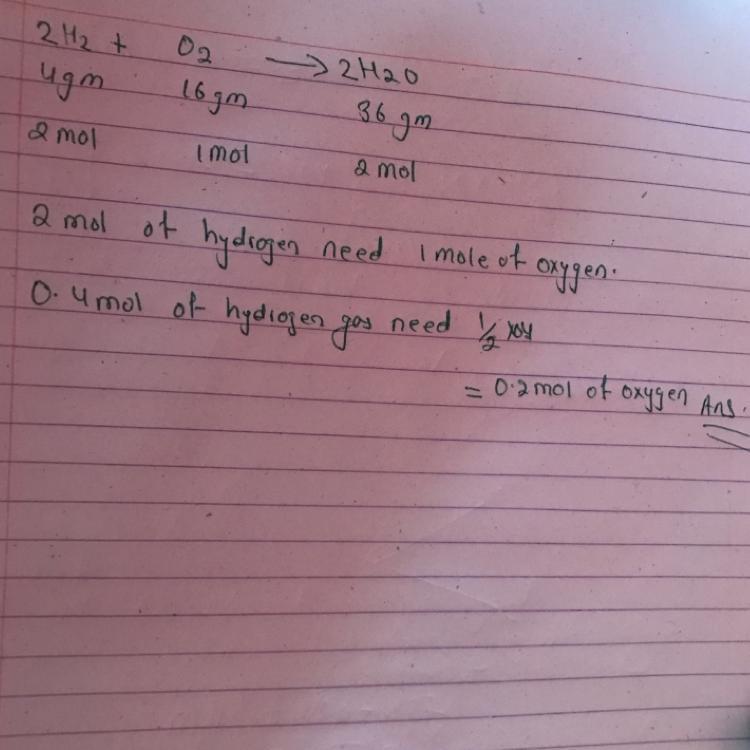 2H2 + O2 → 2H2O
4gm 16gm 36 gm
2 mol 1 mol 2 mol
2 mol of hydrogen need 1 mole of oxygen.
0.4 mol of hydrogen gas need 1/2 x0.4
= 0.2 mol of oxygen Ans.